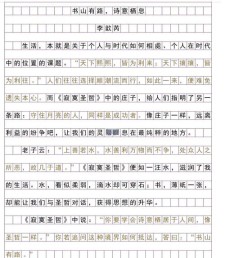 书山有路，诗意栖息
李歆芮
生活，本就是关于个人与时代如何相处、个人在时代
中的位置的课题。“天下熙熙，皆为利来；天下攘攘，皆
为利往。”人们往往选择随潮流而行，如此一来，便难免
遗失本心。而《寂寞圣哲》中的庄子，给人们指明了另一
条路：守住月亮的人，同样是成功者。像庄子一样，远离
利益的纷争吧，让我们的灵 憩息在最纯粹的地方。
老子云：“上善若水，水善利万物而不争，处众人之
所恶，故几于道。”《寂寞圣哲》便如一汪水，滋润了我
的生活。水，看似柔弱，滴水却可穿石；书，薄纸一张，
却能让我们与圣哲对话，获得思想的升华。
《寂寞圣哲》中说：“你要学会诗意栖居于人间，像
圣哲一样。”你若追问这种境界如何抵达，答曰：“书山
有路。”